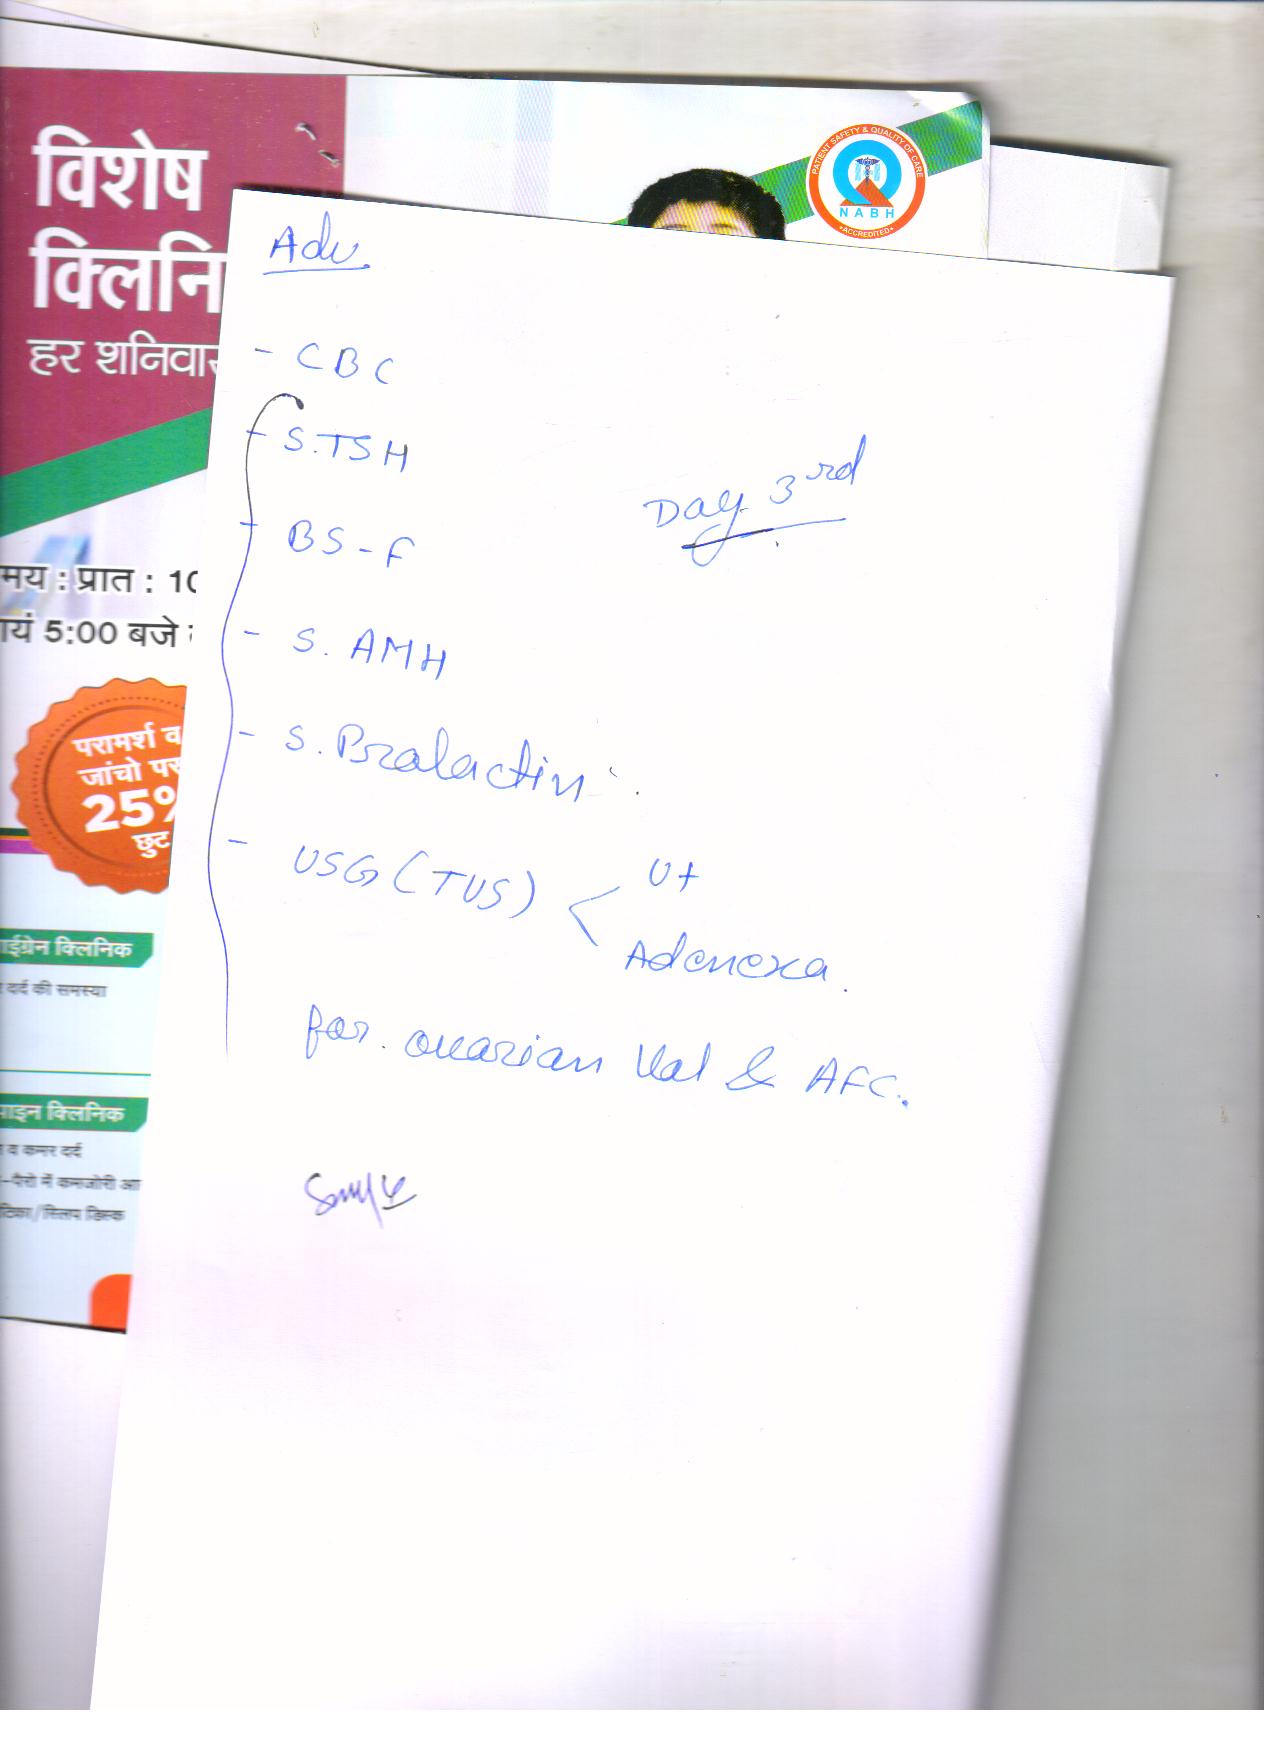 विशेष
क्लिनि
हर शनिवार
मय : प्रात : 10
ायं 5:00 बजे
परामर्श व
जांचो पर
25%
छुट
ाईग्रेन क्लिनिक
दर्द की समस्या
पाइन क्लिनिक
व कमर दर्द
-पैरो में कमजोरी आ
टिका/स्लिप डिस्क
PATIENT SAFETY & QUALITY OF CARE
NABH
•ACCREDITED•
Adv
- CBC
- S.TSH
Day 3rd
- BS-F
- S. AMH
- S. Prolactin
- USG (TVS) < Ut
Adenexa.
for ovarian Vol & AFC.